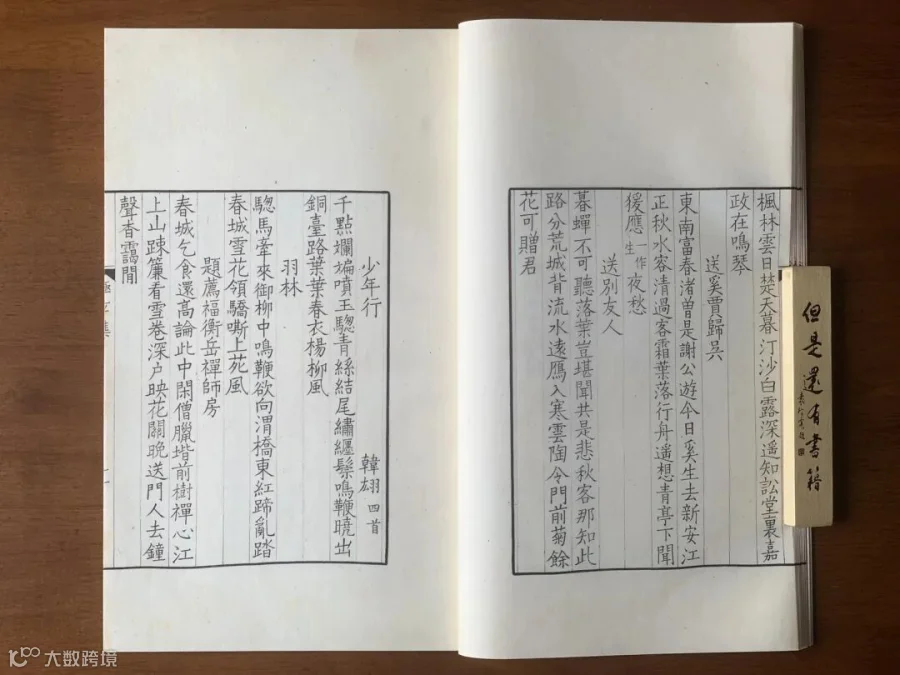 楓林雲日楚天暮汀沙白露深遥知訟堂裏嘉
政在鳴琴
送奚賈歸吳
東南富春渚曽是謝公遊今日奚生去新安江
正秋水客清過客霜葉落行舟遥想青亭下聞
猨應一作生夜愁
送別友人
暮蟬不可聽落葉豈堪聞共是悲秋客那知此
路分荒城背流水遠鴈入寒雲陶令門前菊餘
花可贈君
少年行
韓翃四首
千點斕斒噴玉驄青絲結尾繡纏鬃鳴鞭曉出
銅臺路葉葉春衣楊柳風
羽林
驄馬牽來御柳中鳴鞭欲向渭橋東紅蹄亂踏
春城雪花領驕嘶上苑風
題薦福衡岳禪師房
春城乞食還高論此中閑僧臘堦前樹禪心江
上山踈簾看雪卷深户映花關晚送門人去鐘
聲杳靄閒
但是還有書籍
大数跨境